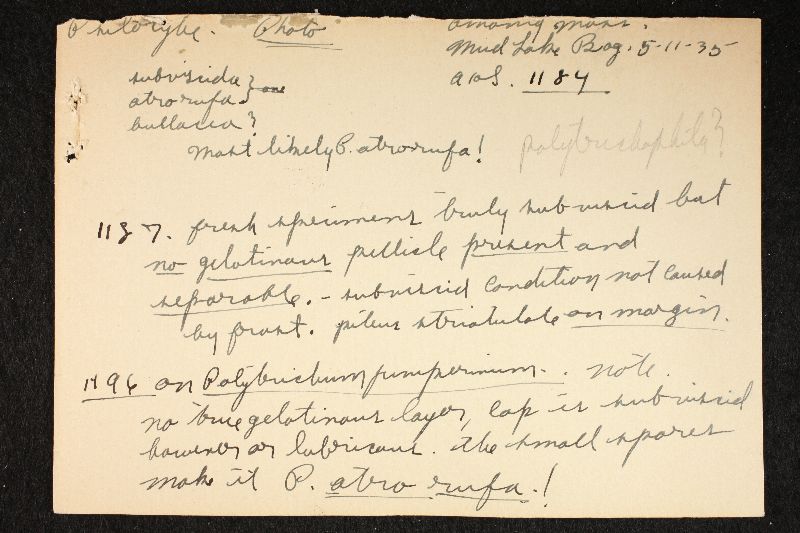 Psilocybe. Photo
among moss.
Mud Lake Bog. 5-11-35
AHS. 1184
subviscida } one
atrorufa
bullacea?
Most likely P. atrorufa!
polytrichophila?
1187. fresh specimens truly subviscid but
no gelatinous pellicle present and
separable. - subviscid condition not caused
by frost. pileus striatulate on margin.
1196 on Polytrichum juniperinum. . note.
no true gelatinous layer, cap is subviscid
however or lubricous. the small spores
make it P. atrorufa.!